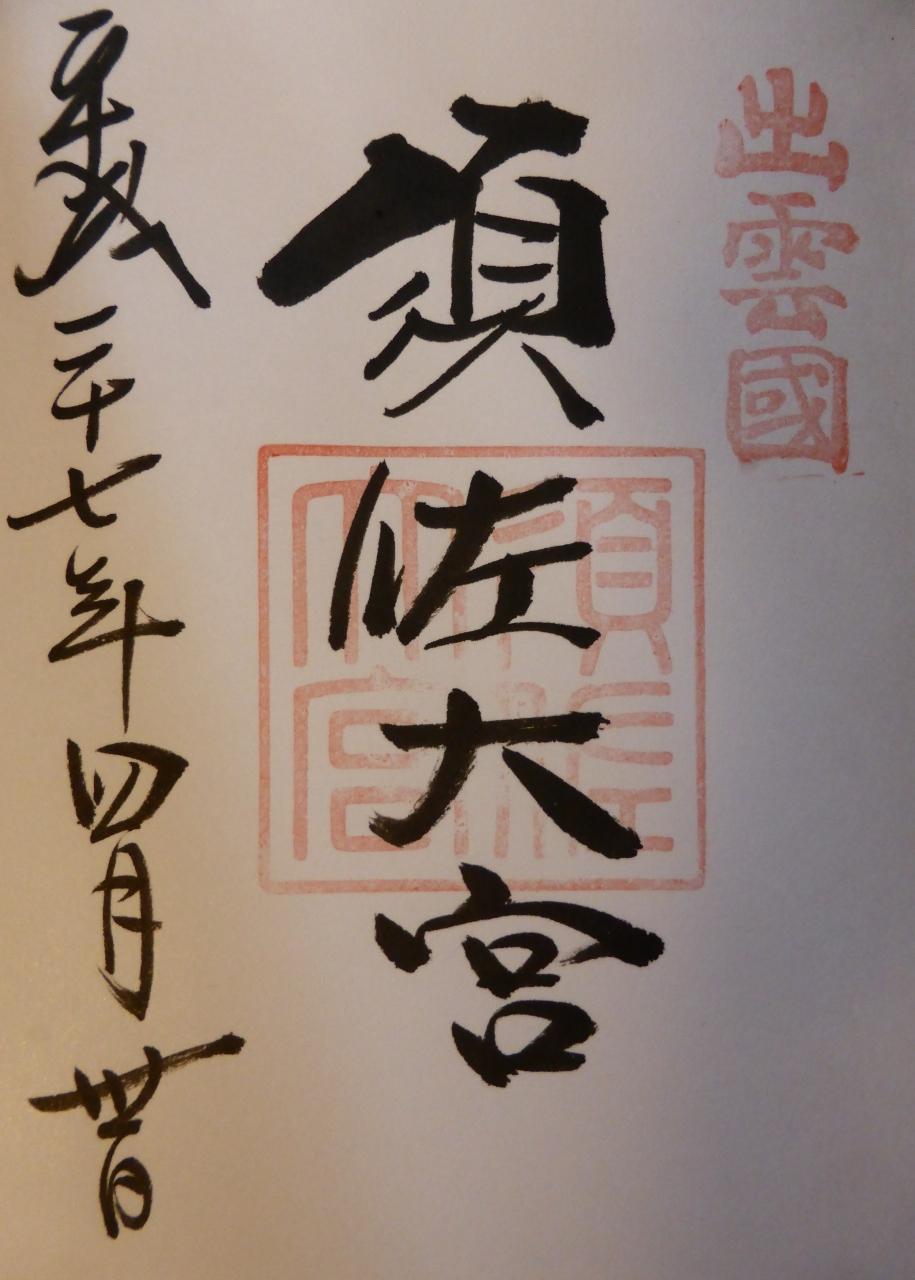 出雲國
須佐大宮
須佐大宮
平成二十七年四月丗日